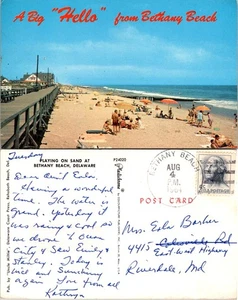 A Big "Hello" from Bethany Beach
Tuesday
PLAYING ON SAND AT
BETHANY BEACH, DELAWARE
P24020
Dear Aunt Eola,
Having a wonderful
time. The water is
grand. Yesterday it
was rainy & cool so
we drove to Ocean
City & saw Emily &
Stanley. Today is
nice and Sunshiny
again. Love from all
Kathryn
BETHANY BEACH
AUG
4
P.M.
POST CARD
Mrs. Eola Barber
4415
East-West Highway
Riverdale, Md